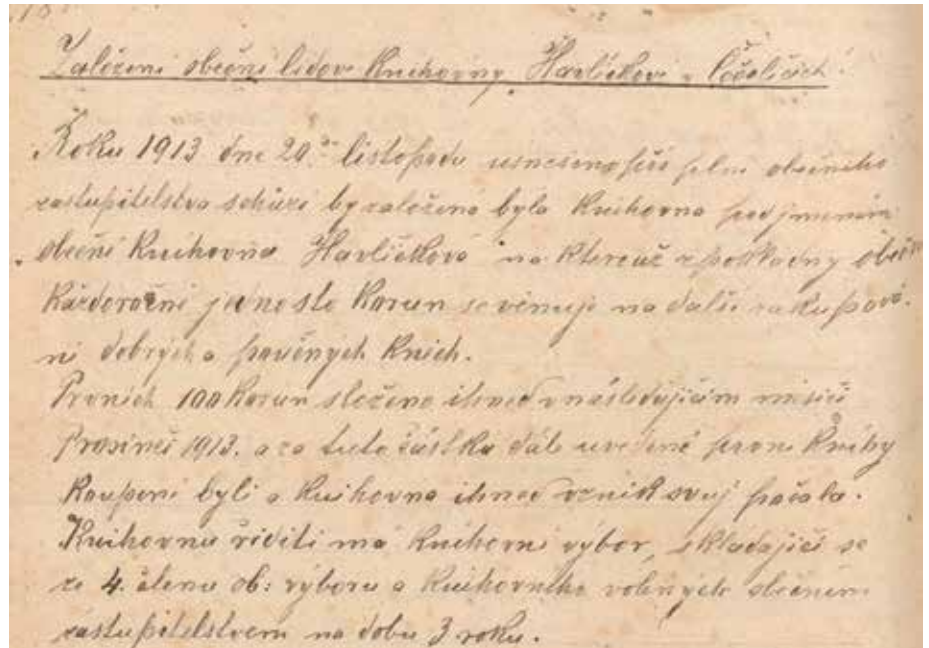 Založení obecní lidové knihovny Havlíčkovi v Točolicích.
Roku 1913 dne 20.ho listopadu usneseno při plní obecního
zastupitelstva schůzi by založena byla knihovna pod jmenem
obecní knihovna Havlíčkova na kterouž z pokladny obec
každoročně jednosto korun se věnuje na další zakupová-
ní dobrých a poučných knich.
Prvních 100 korun složeno ihned v následujícím měsíci
Prosinci 1913. a za tuto částku dále uvedené první knihy
koupeni byli a knihovna ihned vznik svuj počala.
Knihovnu říditi má knihovní výbor, skladající se
ze 4. členu ob: výboru a knihovního volených obecním
zastupitelstvem na dobu 3 roku.